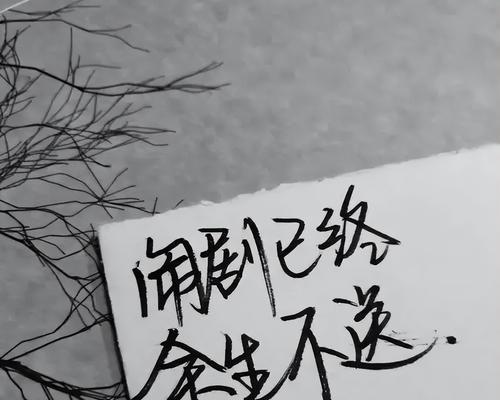 闹剧已终
余生不送.